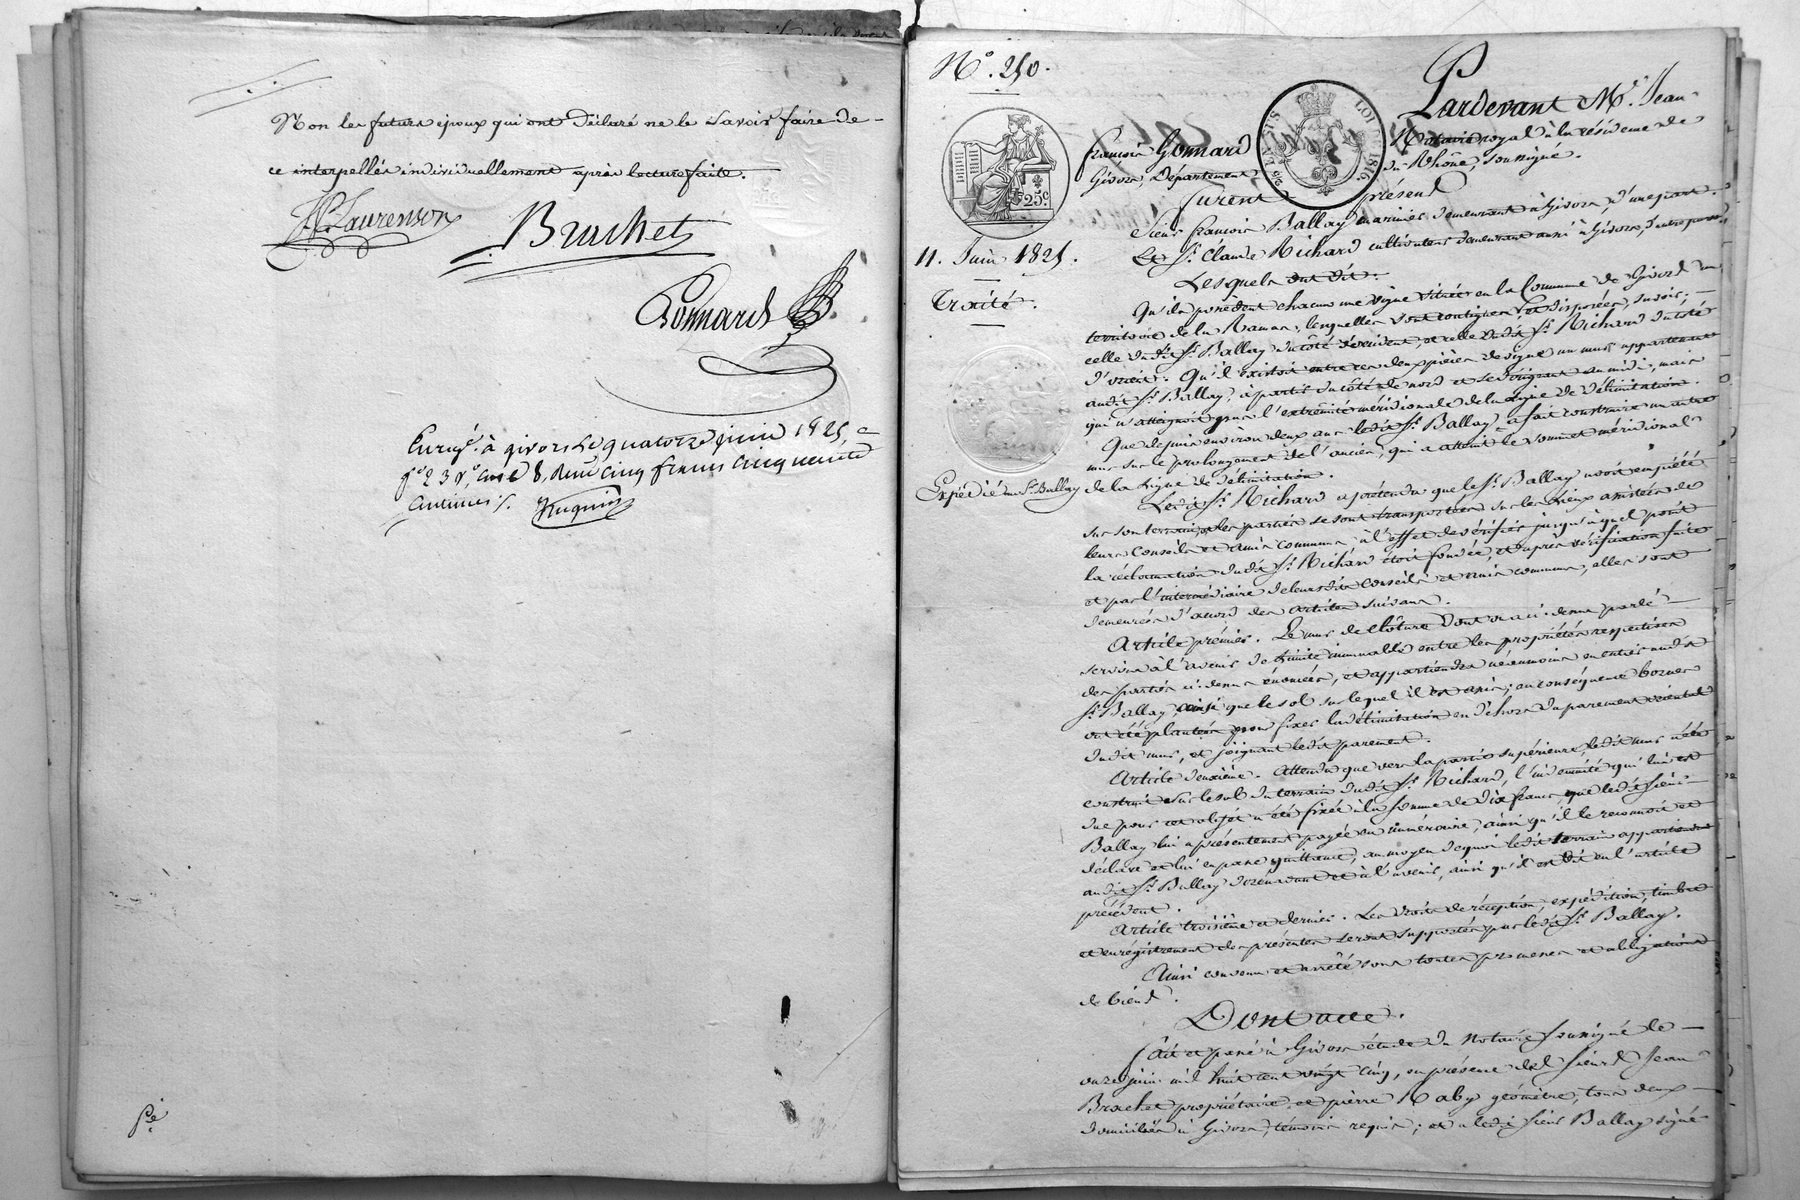 Non les futurs époux qui ont déclaré ne le savoir faire de
ce interpellés individuellement après lecture faite.
Laurenson
Brachet
Gonnard
Enregé. à givors le quatorze juin 1825,
fo. 23 vo. case 8, Reçu cinq francs cinquante
centimes
No. 250.
11. Juin 1825.
Traité.
Expédié au Sr. Ballay
25c
LOI DE 1816
Pardevant Me. Jean
françois Gonnard Notaire royal à la résidence de
Givors, Département du Rhône, soussigné.
furent présens
Sieur françois Ballay marinier demeurant à Givors, d'une part.
Et Sr. Claude Richard cultivateur demeurant aussi à Givors, d'autre part
Lesquels ont dit.
Qu'ils possèdent chacun une vigne située en la Commune de Givors au
territoire de la Rama, lesquelles sont contigues, et disposées, savoir,
celle dudt. Sr. Ballay du côté d'occident, et celle dudit Sr. Richard du côté
d'orient. Qu'il existoit entre ces deux pièces de vigne un mur appartenant
audit Sr. Ballay, à partir du côté de nord et se dirigeant au midi, mais
qui n'atteignoit pas l'extrémité méridionale de la ligne de délimitation.
Que depuis environ deux ans ledit Sr. Ballay a fait construire un autre
mur sur le prolongement de l'ancien, qui a atteint le sommet méridional
de la ligne de délimitation.
Ledit Sr. Richard a prétendu que le Sr. Ballay avoit empiété
sur son terrain, les parties se sont transportées sur les lieux assistées de
leurs Conseils et amis communs à l'effet de vérifier jusqu'à quel point
la réclamation dudit Sr. Richard étoit fondée, et après vérification faite
et par l'intermédiaire de leursdits Conseils et amis communs, elles sont
demeurées d'accord des articles suivans.
Article prémier. Le mur de clôture dont on a ci-dessus parlé
servira à l'avenir de limite immuable entre les propriétés respectives
des parties ci-dessus énoncées, et appartiendra néanmoins en entier audit
Sr. Ballay, ainsi que le sol sur lequel il est assis; en conséquence bornes
ont été plantées pour fixer la délimitation en déhors du parement oriental
dudit mur, et joignant ledit parement.
Article deuxième. Attendu que vers la partie supérieure ledit mur a été
construit sur le sol du terrain dudit Sr. Richard, l'indemnité qui lui est
due pour cet objet a été fixée à la somme de dix francs, que ledit Sieur
Ballay lui a présentement payée en numéraire, ainsi qu'il le reconnoit et
déclare et lui en passe quittance, au moyen de quoi ledit terrain appartiendra
audit Sr. Ballay dorénavant et à l'avenir, ainsi qu'il est dit en l'article
précédent.
Article troisième et dernier. Les droits de réception, expédition, timbre
et enrégistrement des présentes seront supportés par ledit Sr. Ballay.
Ainsi convenu et arrêté sous toutes promesses et obligations
de biens.
Dont acte.
fait et passé à Givors étude du Notaire soussigné le
onze juin mil huit cent vingt cinq, en présence des Sieurs Jean
Brachet propriétaire et pierre Raby géomètre, tous deux
domiciliés à Givors, témoins requis; et a ledit Sieur Ballay signé